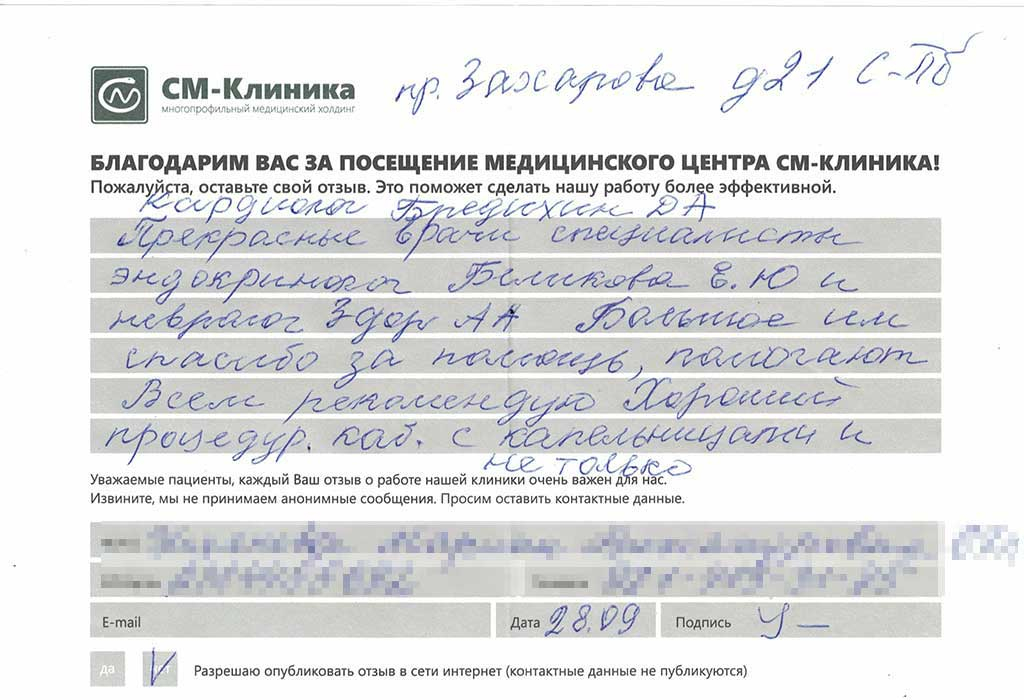 СМ-Клиника
многопрофильный медицинский холдинг
пр. Захарова д21 С-Пб
БЛАГОДАРИМ ВАС ЗА ПОСЕЩЕНИЕ МЕДИЦИНСКОГО ЦЕНТРА СМ-КЛИНИКА!
Пожалуйста, оставьте свой отзыв. Это поможет сделать нашу работу более эффективной.
Кардиолог Бредихин ДА
Прекрасные врачи специалисты
эндокринолог Беликова Е.Ю и
невролог Здор АА Большое им
спасибо за помощь, помогают
Всем рекомендую Хороший
процедур. каб. с капельницами и
не только
Уважаемые пациенты, каждый Ваш отзыв о работе нашей клиники очень важен для нас.
Извините, мы не принимаем анонимные сообщения. Просим оставить контактные данные.
E-mail
Дата 28.09
Подпись
да нет Разрешаю опубликовать отзыв в сети интернет (контактные данные не публикуются)